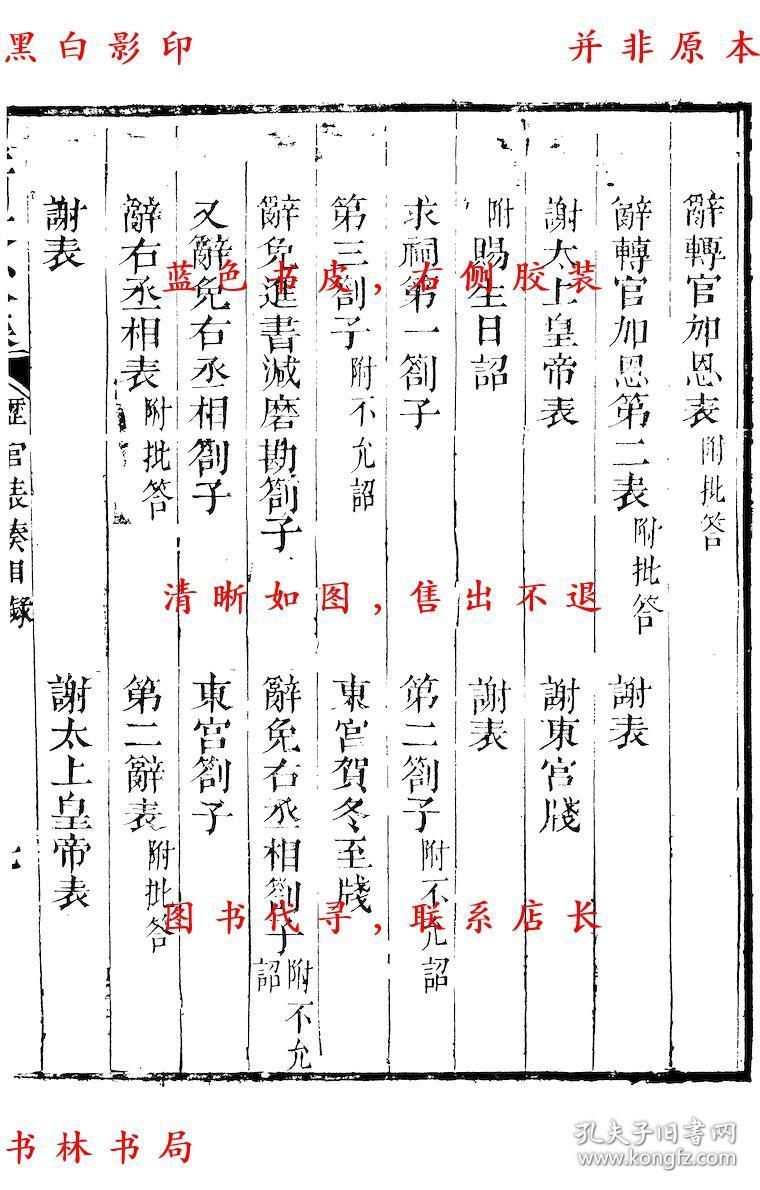 黑白影印
并非原本
辭轉官加恩表 附批答
辭轉官加恩第二表 附批答 謝表
謝太上皇帝表 謝東宮牋
附賜生日詔 謝表
求祠第一劄子 第二劄子 附不允詔
第三劄子 附不允詔 東宮賀冬至牋
辭免進書減磨勘劄子 辭免右丞相劄子 附不允詔
又辭免右丞相劄子 東宮劄子
辭右丞相表 附批答 第二辭表 附批答
謝表 謝太上皇帝表
歷官表奏目錄
蓝色书皮,右侧胶装
清晰如图,售出不退
图书代寻,联系店长
书林书局
孔夫子旧书网
www.kongfz.com